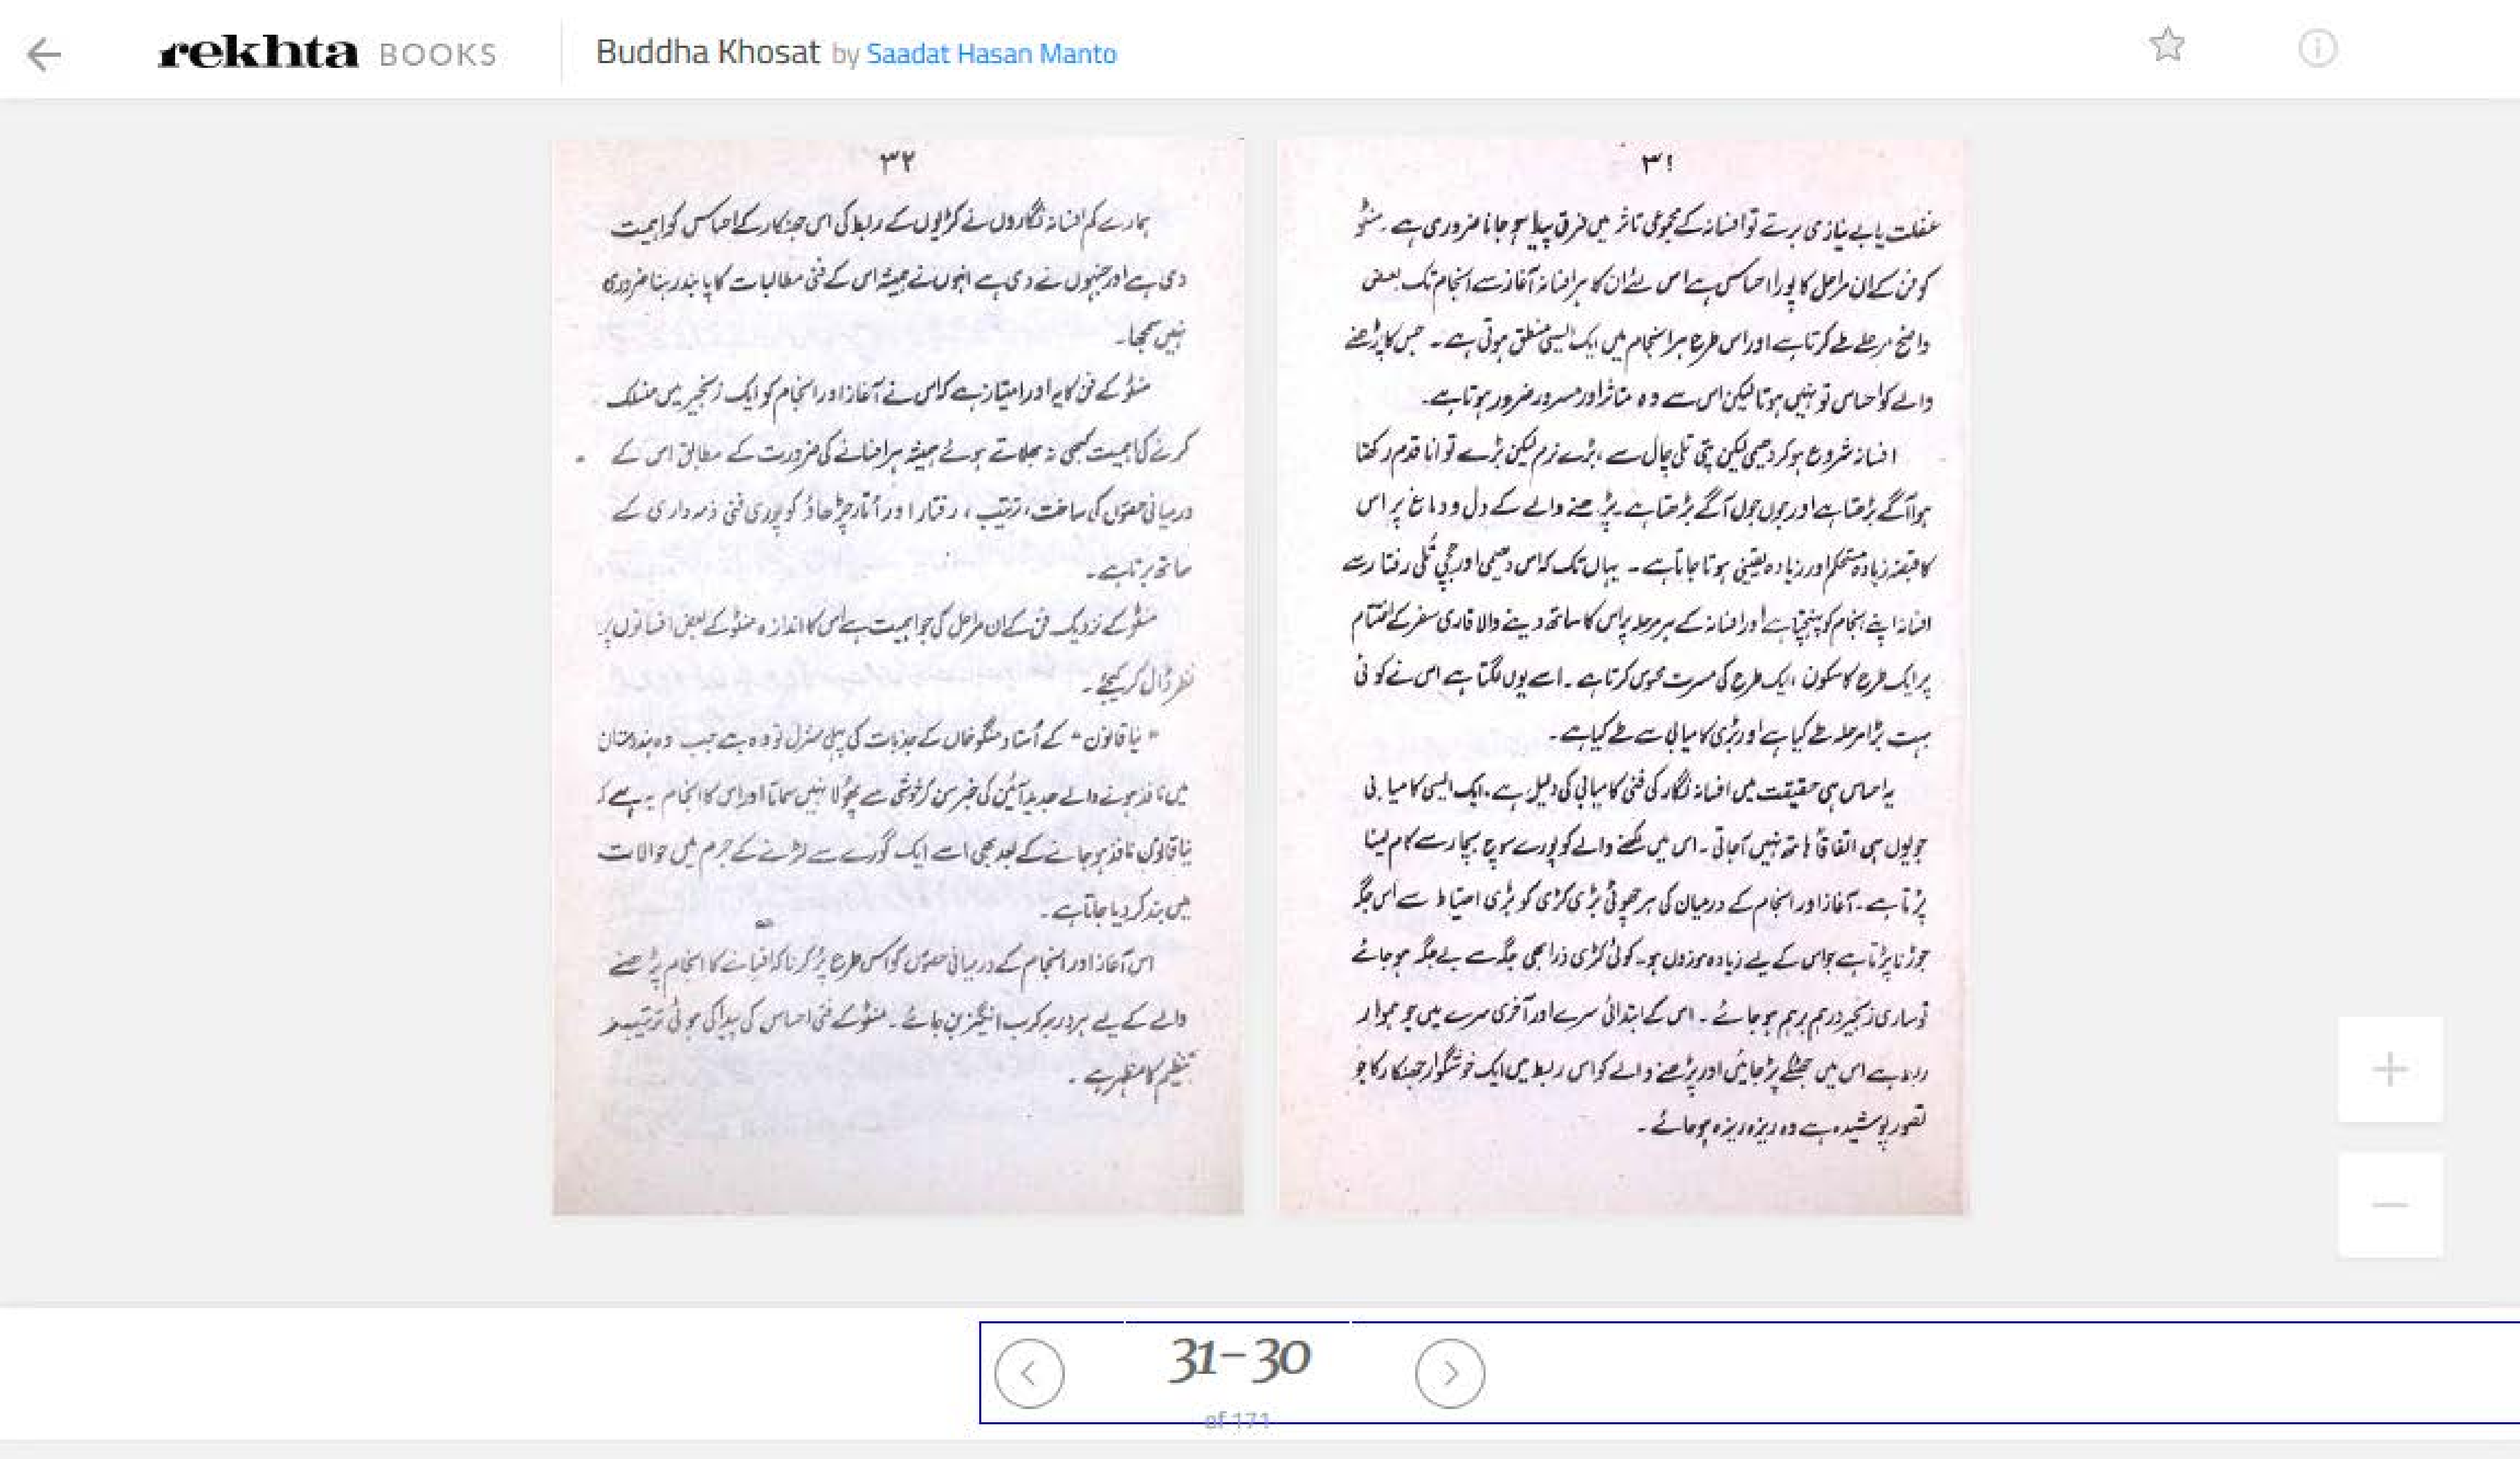 rekhta BOOKS
Buddha Khosat by Saadat Hasan Manto
۳۱
غفلت یا بے نیازی برتے تو افسانہ کے مجموعی تاثر میں فرق پیدا ہو جانا ضروری ہے۔ منٹو
کو فن کے ان مراحل کا پورا احساس ہے اس لئے ان کا ہر افسانہ آغاز سے انجام تک بعض
واضح مرحلے طے کرتا ہے اور اس طرح ہر انجام میں ایک ایسی منطق ہوتی ہے۔ جس کا پڑھنے
والے کو احساس تو نہیں ہوتا لیکن اس سے وہ متاثر اور مسرور ضرور ہوتا ہے۔
افسانہ شروع ہو کر دھیمی لیکن نپی تلی چال سے، بڑے نرم لیکن بڑے توانا قدم رکھتا
ہوا آگے بڑھتا ہے اور جوں جوں آگے بڑھتا ہے۔ پڑھنے والے کے دل و دماغ پر اس
کا قبضہ زیادہ مستحکم اور زیادہ یقینی ہوتا جاتا ہے۔ یہاں تک کہ اس دھیمی اور نچی تُلی رفتار سے
افسانہ اپنے انجام کو پہنچتا ہے اور افسانہ کے ہر مرحلہ پر اس کا ساتھ دینے والا قاری سفر کے اختتام
پر ایک طرح کا سکون، ایک طرح کی مسرت محسوس کرتا ہے۔ اسے یوں لگتا ہے اس نے کوئی
بہت بڑا مرحلہ طے کیا ہے اور بڑی کامیابی سے طے کیا ہے۔
یہ احساس ہی حقیقت میں افسانہ نگار کی فنی کامیابی کی دلیل ہے، ایک ایسی کامیابی
جو یوں ہی اتفاقاً ہاتھ نہیں آجاتی۔ اس میں لکھنے والے کو پورے سوچ بچار سے کام لینا
پڑتا ہے۔ آغاز اور انجام کے درمیان کی ہر چھوٹی بڑی کڑی کو بڑی احتیاط سے اُس جگہ
جوڑنا پڑتا ہے جو اس کے لیے زیادہ موزوں ہو۔ کوئی کڑی ذرا بھی جگہ سے بے جگہ ہو جائے
تو ساری زنجیر درہم برہم ہو جائے۔ اس کے ابتدائی سرے اور آخری سرے میں جو ہموار
ربط ہے اس میں جھٹکے پڑ جائیں اور پڑھنے والے کو اس ربط میں ایک خوشگوار جھنکار کا جو
تصور پوشیدہ ہے وہ ریزہ ریزہ ہو جائے۔
۳۲
ہمارے کم افسانہ نگاروں نے کڑیوں کے ربط کی اس جھنکار کے احساس کو اہمیت
دی ہے اور جنہوں نے دی ہے انہوں نے ہمیشہ اس کے فنی مطالبات کا پابند رہنا ضروری
نہیں سمجھا۔
منٹو کے فن کا یہ اور امتیاز ہے کہ اس نے آغاز اور انجام کو ایک زنجیر میں منسلک
کرنے کی اہمیت کبھی نہ بھلاتے ہوئے ہمیشہ ہر افسانے کی ضرورت کے مطابق اس کے
درمیانی حصّوں کی ساخت، ترتیب، رفتار اور اُتار چڑھاؤ کو پوری فنی ذمہ داری کے
ساتھ برتا ہے۔
منٹو کے نزدیک فن کے ان مراحل کی جو اہمیت ہے اُس کا اندازہ منٹو کے بعض افسانوں پر
نظر ڈال کر کیجئے۔
"نیا قانون" کے اُستاد منگو خاں کے جذبات کی پہلی منزل تو وہ ہے جب وہ ہندوستان
میں نافذ ہونے والے جدید آئین کی خبر سن کر خوشی سے پھولا نہیں سماتا اور اس کا انجام یہ ہے کہ
نیا قانون نافذ ہو جانے کے بعد بھی اسے ایک گورے سے لڑنے کے جرم میں حوالات
میں بند کر دیا جاتا ہے۔
اس آغاز اور انجام کے درمیانی حصوں کو اس طرح پُر کرنا کہ افسانے کا انجام پڑھنے
والے کے لیے ہر درجہ کرب انگیز بن جائے۔ منٹو کے فنی احساس کی پیدا کی ہوئی ترتیب و
تنظیم کا مظہر ہے۔
31-30
of 171